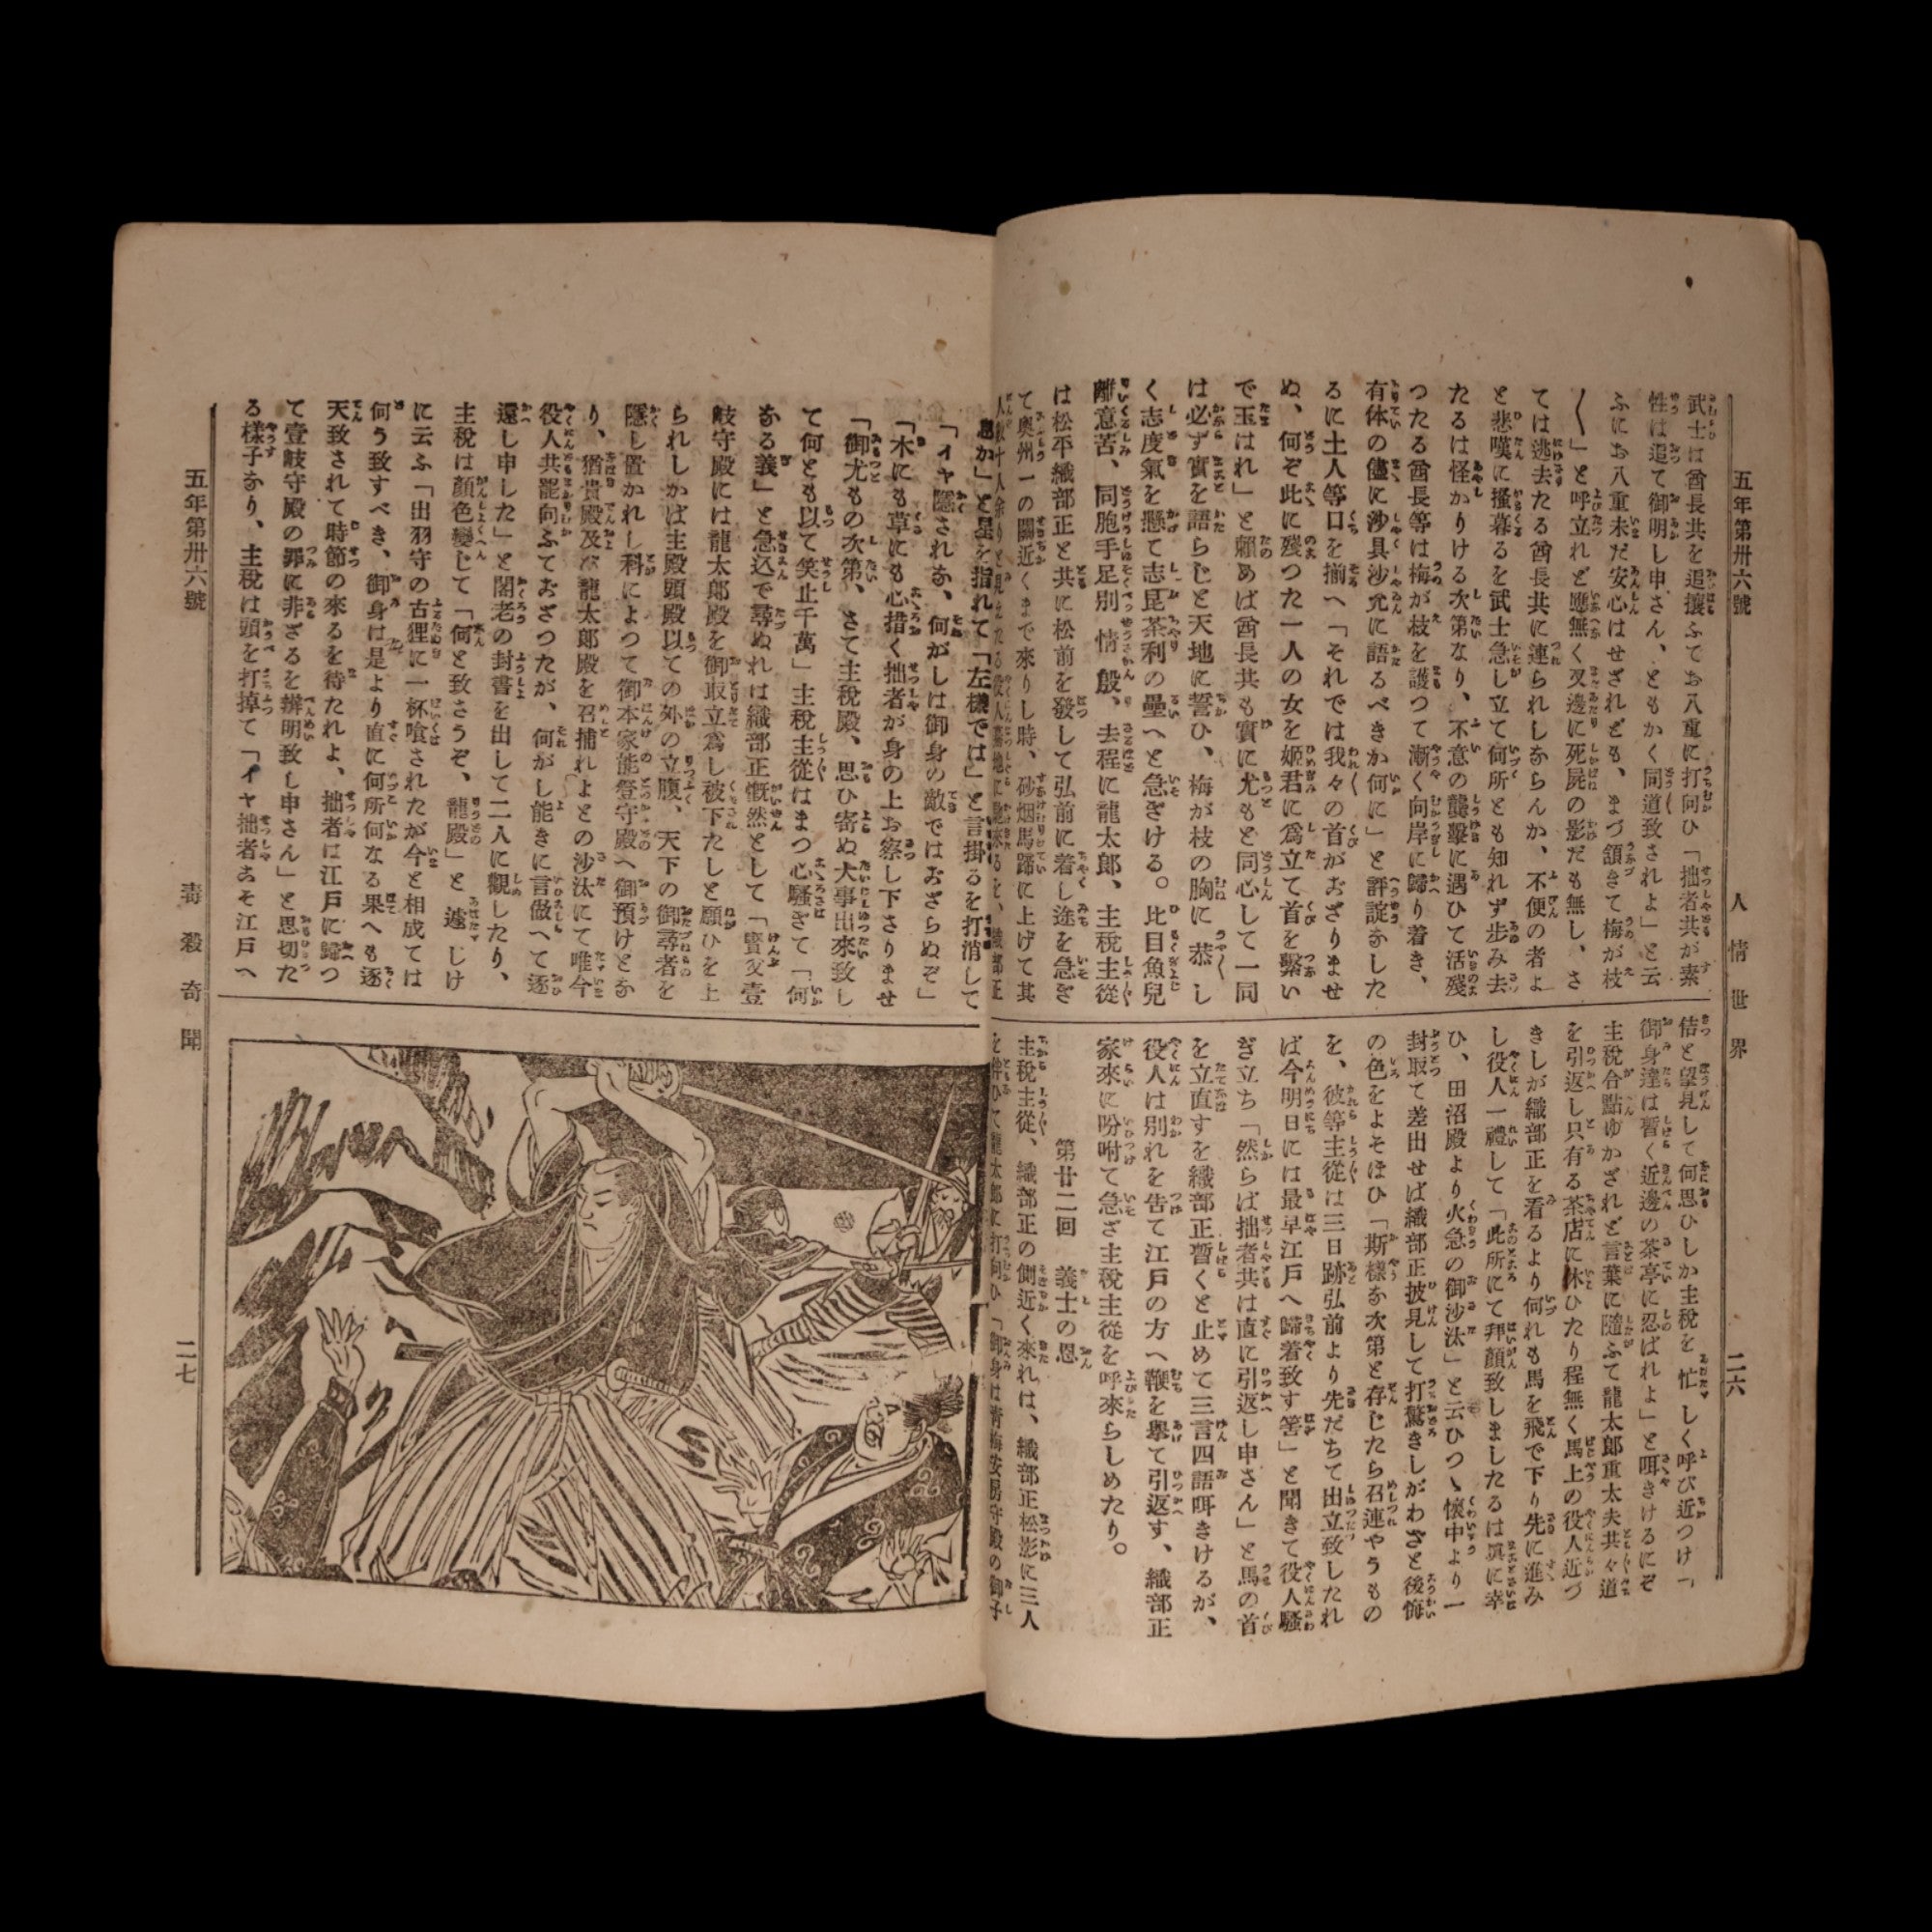 五年第卅六號
人情世界
二六
武士は酋長共を追攘ふてお八重に打向ひ「拙者共が素
性は追て御明し申さん、ともかく同道致されよ」と云
ふにお八重未だ安心はせざれども、まづ頷きて梅が枝
〳〵」と呼立れど應無く叉邊に死屍の影だも無し、さ
ては逃去たる酋長共に連られしならんか、不便の者よ
と悲嘆に掻暮るを武士急し立て何所とも知れず歩み去
たるは怪かりける次第なり、不意の襲擊に遇ひて活殘
つたる酋長等は梅が枝を護つて漸く向岸に歸り着き、
有体の儘に沙具沙允に語るべきか何に」と評諚なした
るに土人等口を揃へ「それでは我々の首がおざりませ
ぬ、何ぞ此に殘つた一人の女を姬君に爲立て首を繫い
で玉はれ」と賴めば酋長共も實に尤もと同心して一同
は必ず實を語らじと天地に誓ひ、梅が枝の胸に恭し
く志度氣を懸て志毘茶利の壘へと急ぎける。比目魚兒
離意苦、同胞手足別情慇、去程に龍太郎、主稅主從
は松平織部正と共に松前を發して弘前に着し途を急ぎ
て奥州一の關近くまで來りし時、砂烟馬蹄に上げて其
佶と望見して何思ひしか主稅を忙しく呼び近つけ「
御身達は暫く近邊の茶亭に忍ばれよ」と咡きけるにぞ
主稅合點ゆかざれど言葉に隨ふて龍太郎重太夫共々道
を引返し只有る茶店に休ひたり程無く馬上の役人近づ
きしが織部正を看るより何れも馬を飛で下り先に進み
し役人一禮して「此所にて拜顏致しましたるは眞に幸
ひ、田沼殿より火急の御沙汰」と云ひつゝ懷中より一
封取て差出せば織部正披見して打驚きしがわざと後悔
の色をよそほひ「斯樣な次第と存じたら召連やうもの
を、彼等主從は三日跡弘前より先だちて出立致したれ
ば今明日には最早江戸へ歸着致す筈」と聞きて役人騷
ぎ立ち「然らば拙者共は直に引返し申さん」と馬の首
を立直すを織部正暫くと止めて三言四語咡きけるが、
役人は別れを告て江戸の方へ鞭を擧て引返す、織部正
家來に吩咐て急ぎ主稅主從を呼來らしめたり。
第廿二回　義士の恩
主稅主從、織部正の側近く來れば、織部正松影に三人
思か」と星を指れて「左樣では」と言掛るを打消して
「イヤ隱されな、何がしは御身の敵ではおざらぬぞ」
「木にも草にも心措く拙者が身の上お察し下さりませ
「御尤もの次第、さて主稅殿、思ひ寄ぬ大事出來致し
て何とも以て笑止千萬」主稅主從はまつ心騷ぎて「何
なる義」と急込で尋ぬれは織部正慨然として「實父壹
岐守殿には龍太郎殿を御取立爲し被下たしと願ひを上
られしかば主殿頭殿以ての外の立腹、天下の御尋者を
隱し置かれし科によつて御本家能登守殿へ御預けとな
り、猶貴殿及び龍太郎殿を召捕れよとの沙汰にて唯今
役人共罷向ふておざつたが、何がし能きに言做へて逐
還し申した」と閣老の封書を出して二人に觀したり、
主稅は顏色變じて「何と致さうぞ、龍殿」と遽しけ
に云ふ「出羽守の古狸に一杯喰されたが今と相成ては
何う致すべき、御身は是より直に何所何なる果へも逐
天致されて時節の來るを待たれよ、拙者は江戸に歸つ
て壹岐守殿の罪に非ざるを辨明致し申さん」と思切た
る樣子なり、主稅は頭を打掉て「イヤ拙者こそ江戸へ
五年第卅六號
毒殺奇聞
二七